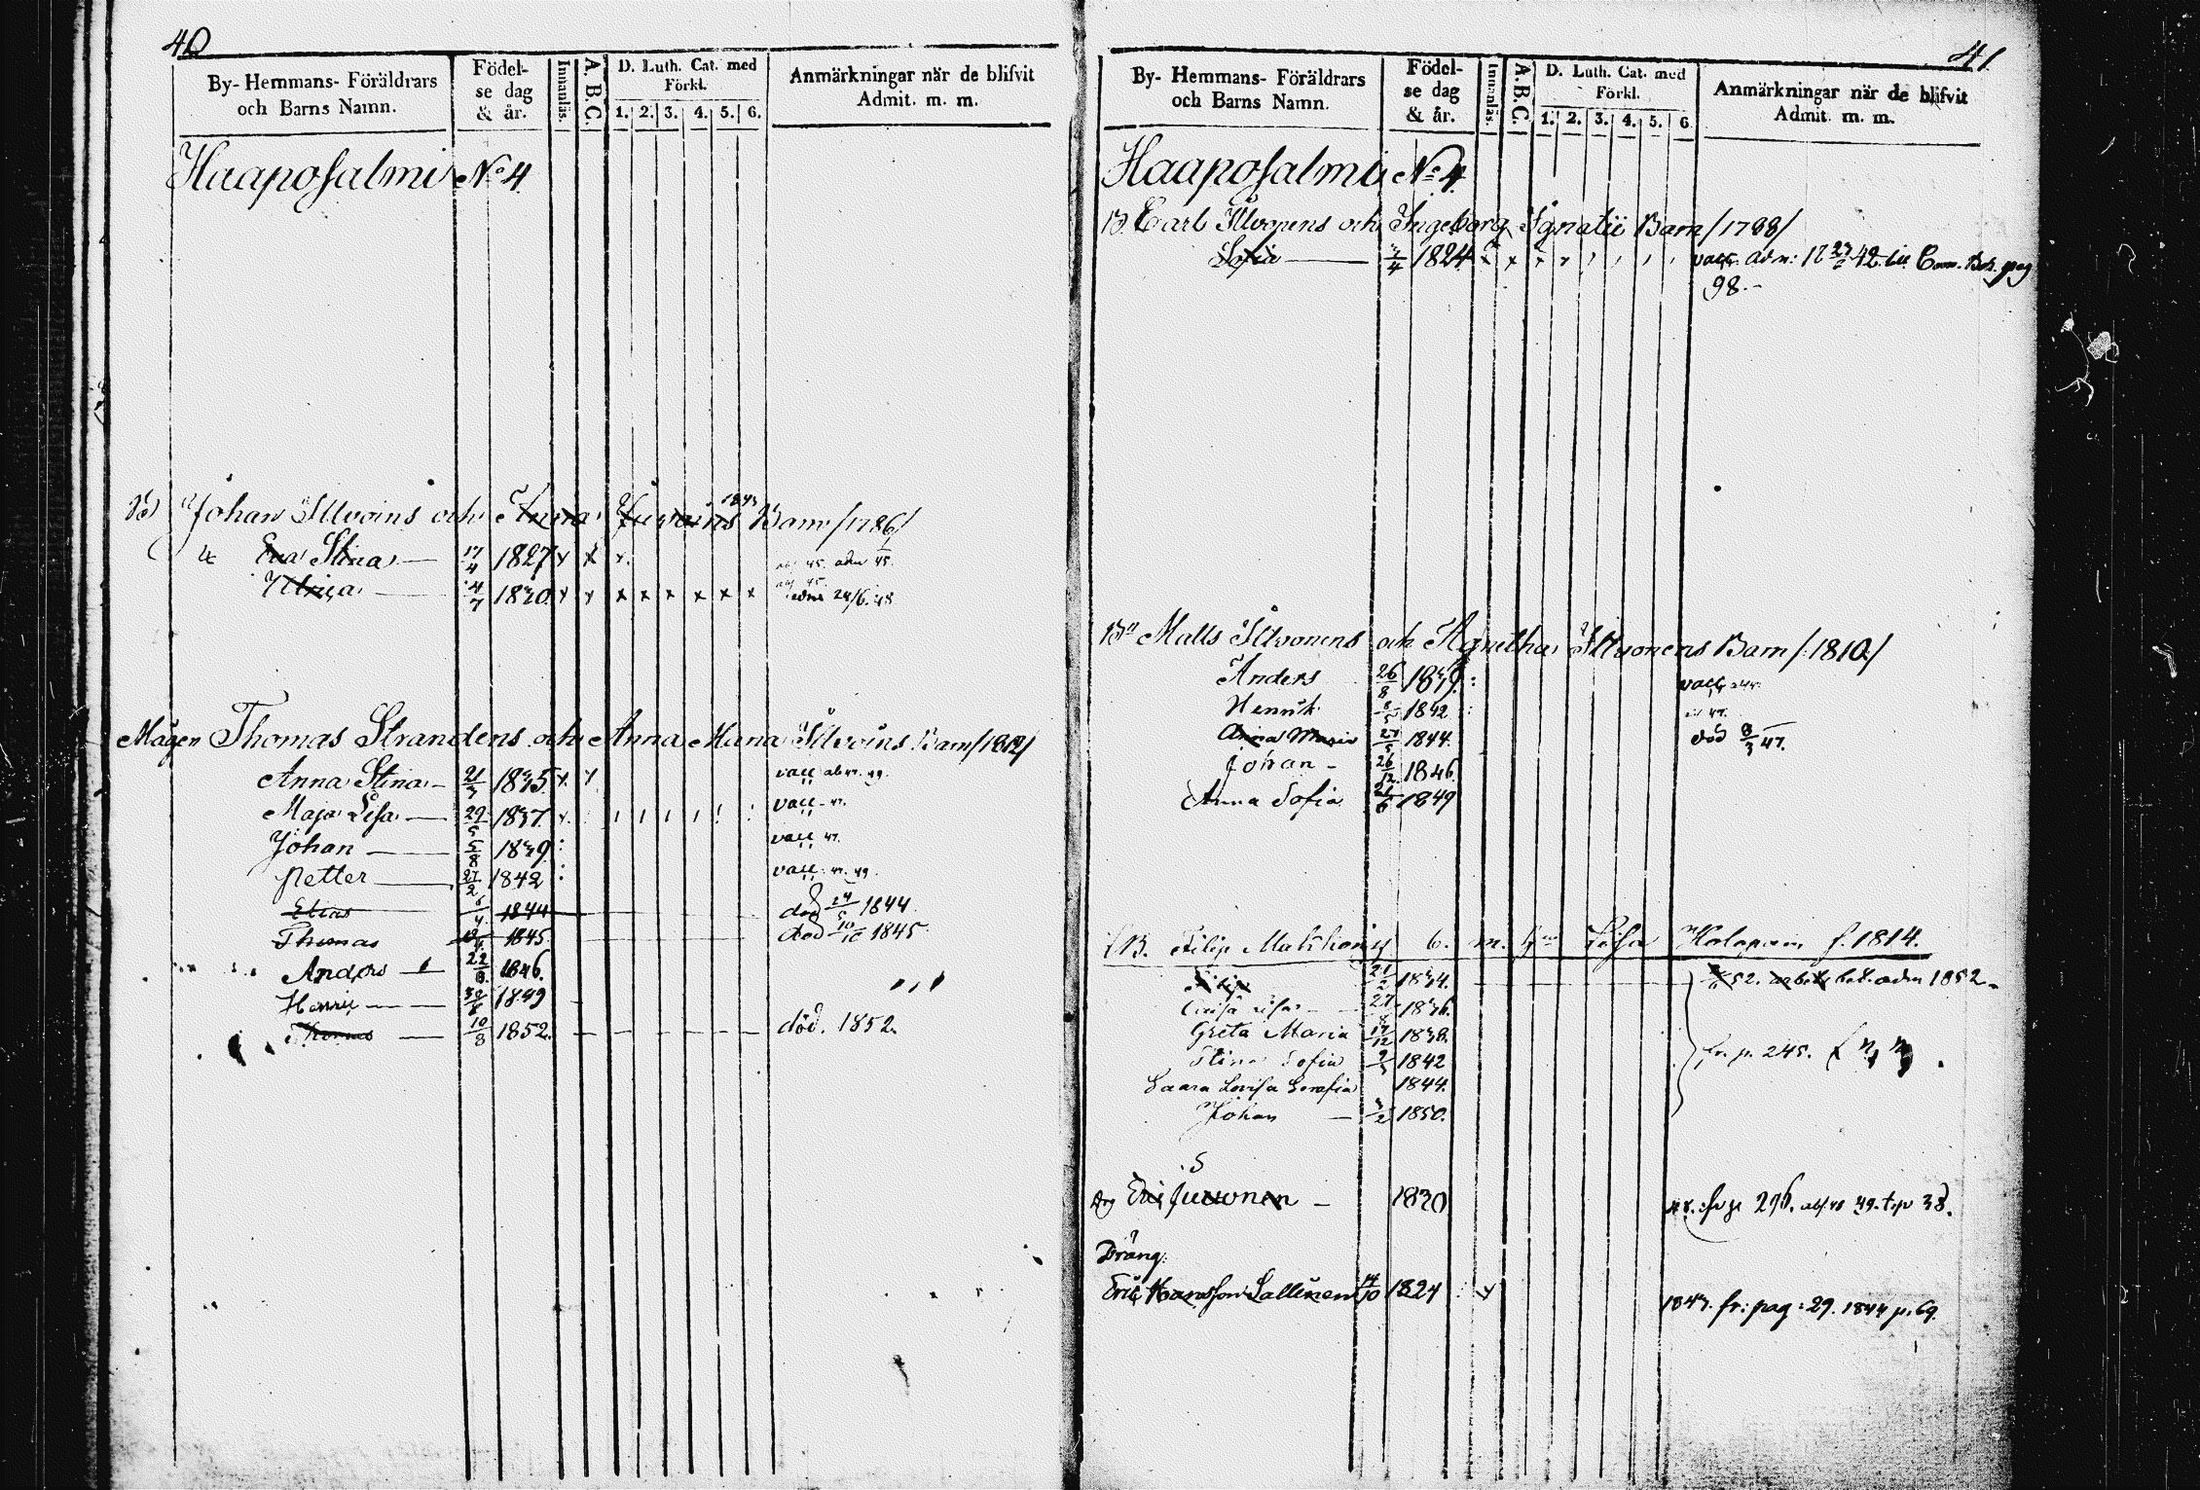 40
By- Hemmans- Föräldrars och Barns Namn.
Födel-se dag & år.
Innanläs.
A. B. C.
D. Luth. Cat. med Förkl.
1. 2. 3. 4. 5. 6.
Anmärkningar när de blifvit Admit. m. m.
Haaposalmi No 4
Johan Ilvoins och Anna 1843 Barn /1786/
Eva Stina 17/4 1827 x x x. adm 45.
Ulrica 4/7 1830 x x x x x x x x adm 24/6 48
Mågen Thomas Strandens och Anna Maria Ilvoins Barn /1812/
Anna Stina 21/7 1835 x x vacc
Maja Lisa 29/5 1837 x vacc 47.
Johan 5/8 1839 vacc 47.
Petter 27/2 1842 vacc 49.
Elias 6/4 1844 död 24/5 1844
Thomas 1845 död 1845
Anders 22/8 1846.
Henric 30/6 1849
Thomas 10/8 1852. död. 1852.
41
By- Hemmans- Föräldrars och Barns Namn.
Födel-se dag & år.
Innanläs.
A. B. C.
D. Luth. Cat. med Förkl.
1. 2. 3. 4. 5. 6
Anmärkningar när de blifvit Admit. m. m.
Haaposalmi No 4
B. Carl Ilvonens och Ingeborg Ignatii Barn /1788/
Sofia 3/4 1824 x x x x vacc. adm: 42 Com. Bok. pag
98.-
Bn Matts Ilvonens och Agnetha Ilvonens Barn /1810/
Anders 26/8 1839 vacc
Henrik 8/5 1842
Anna Maria 27/5 1844. död 8/3 47.
Johan - 26/12 1846
Anna Sofia 21/6 1849
B. Filip Matskainen 6. m. Lisa Holopain f. 1814.
Filip 21/2 1834. 52. adm 1852
Lisa 1836.
Greta Maria 17/12 1838.
Stina Sofia 9/5 1842 fr. p. 245.
Saara Lovisa Serafia 1844.
Johan 3/2 1850.
Dg Eric Juvonen - 1830 fr p 296. 49. t. p 38.
Dräng:
Eric Hansson Sallinen 14/10 1824 1843. fr: pag: 29. 1844 p. 69.